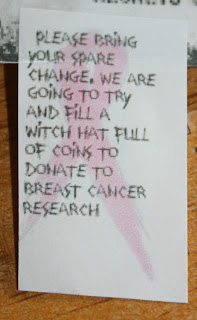 PLEASE BRING
YOUR SPARE
CHANGE. WE ARE
GOING TO TRY
AND FILL A
WITCH HAT FULL
OF COINS TO
DONATE TO
BREAST CANCER
RESEARCH